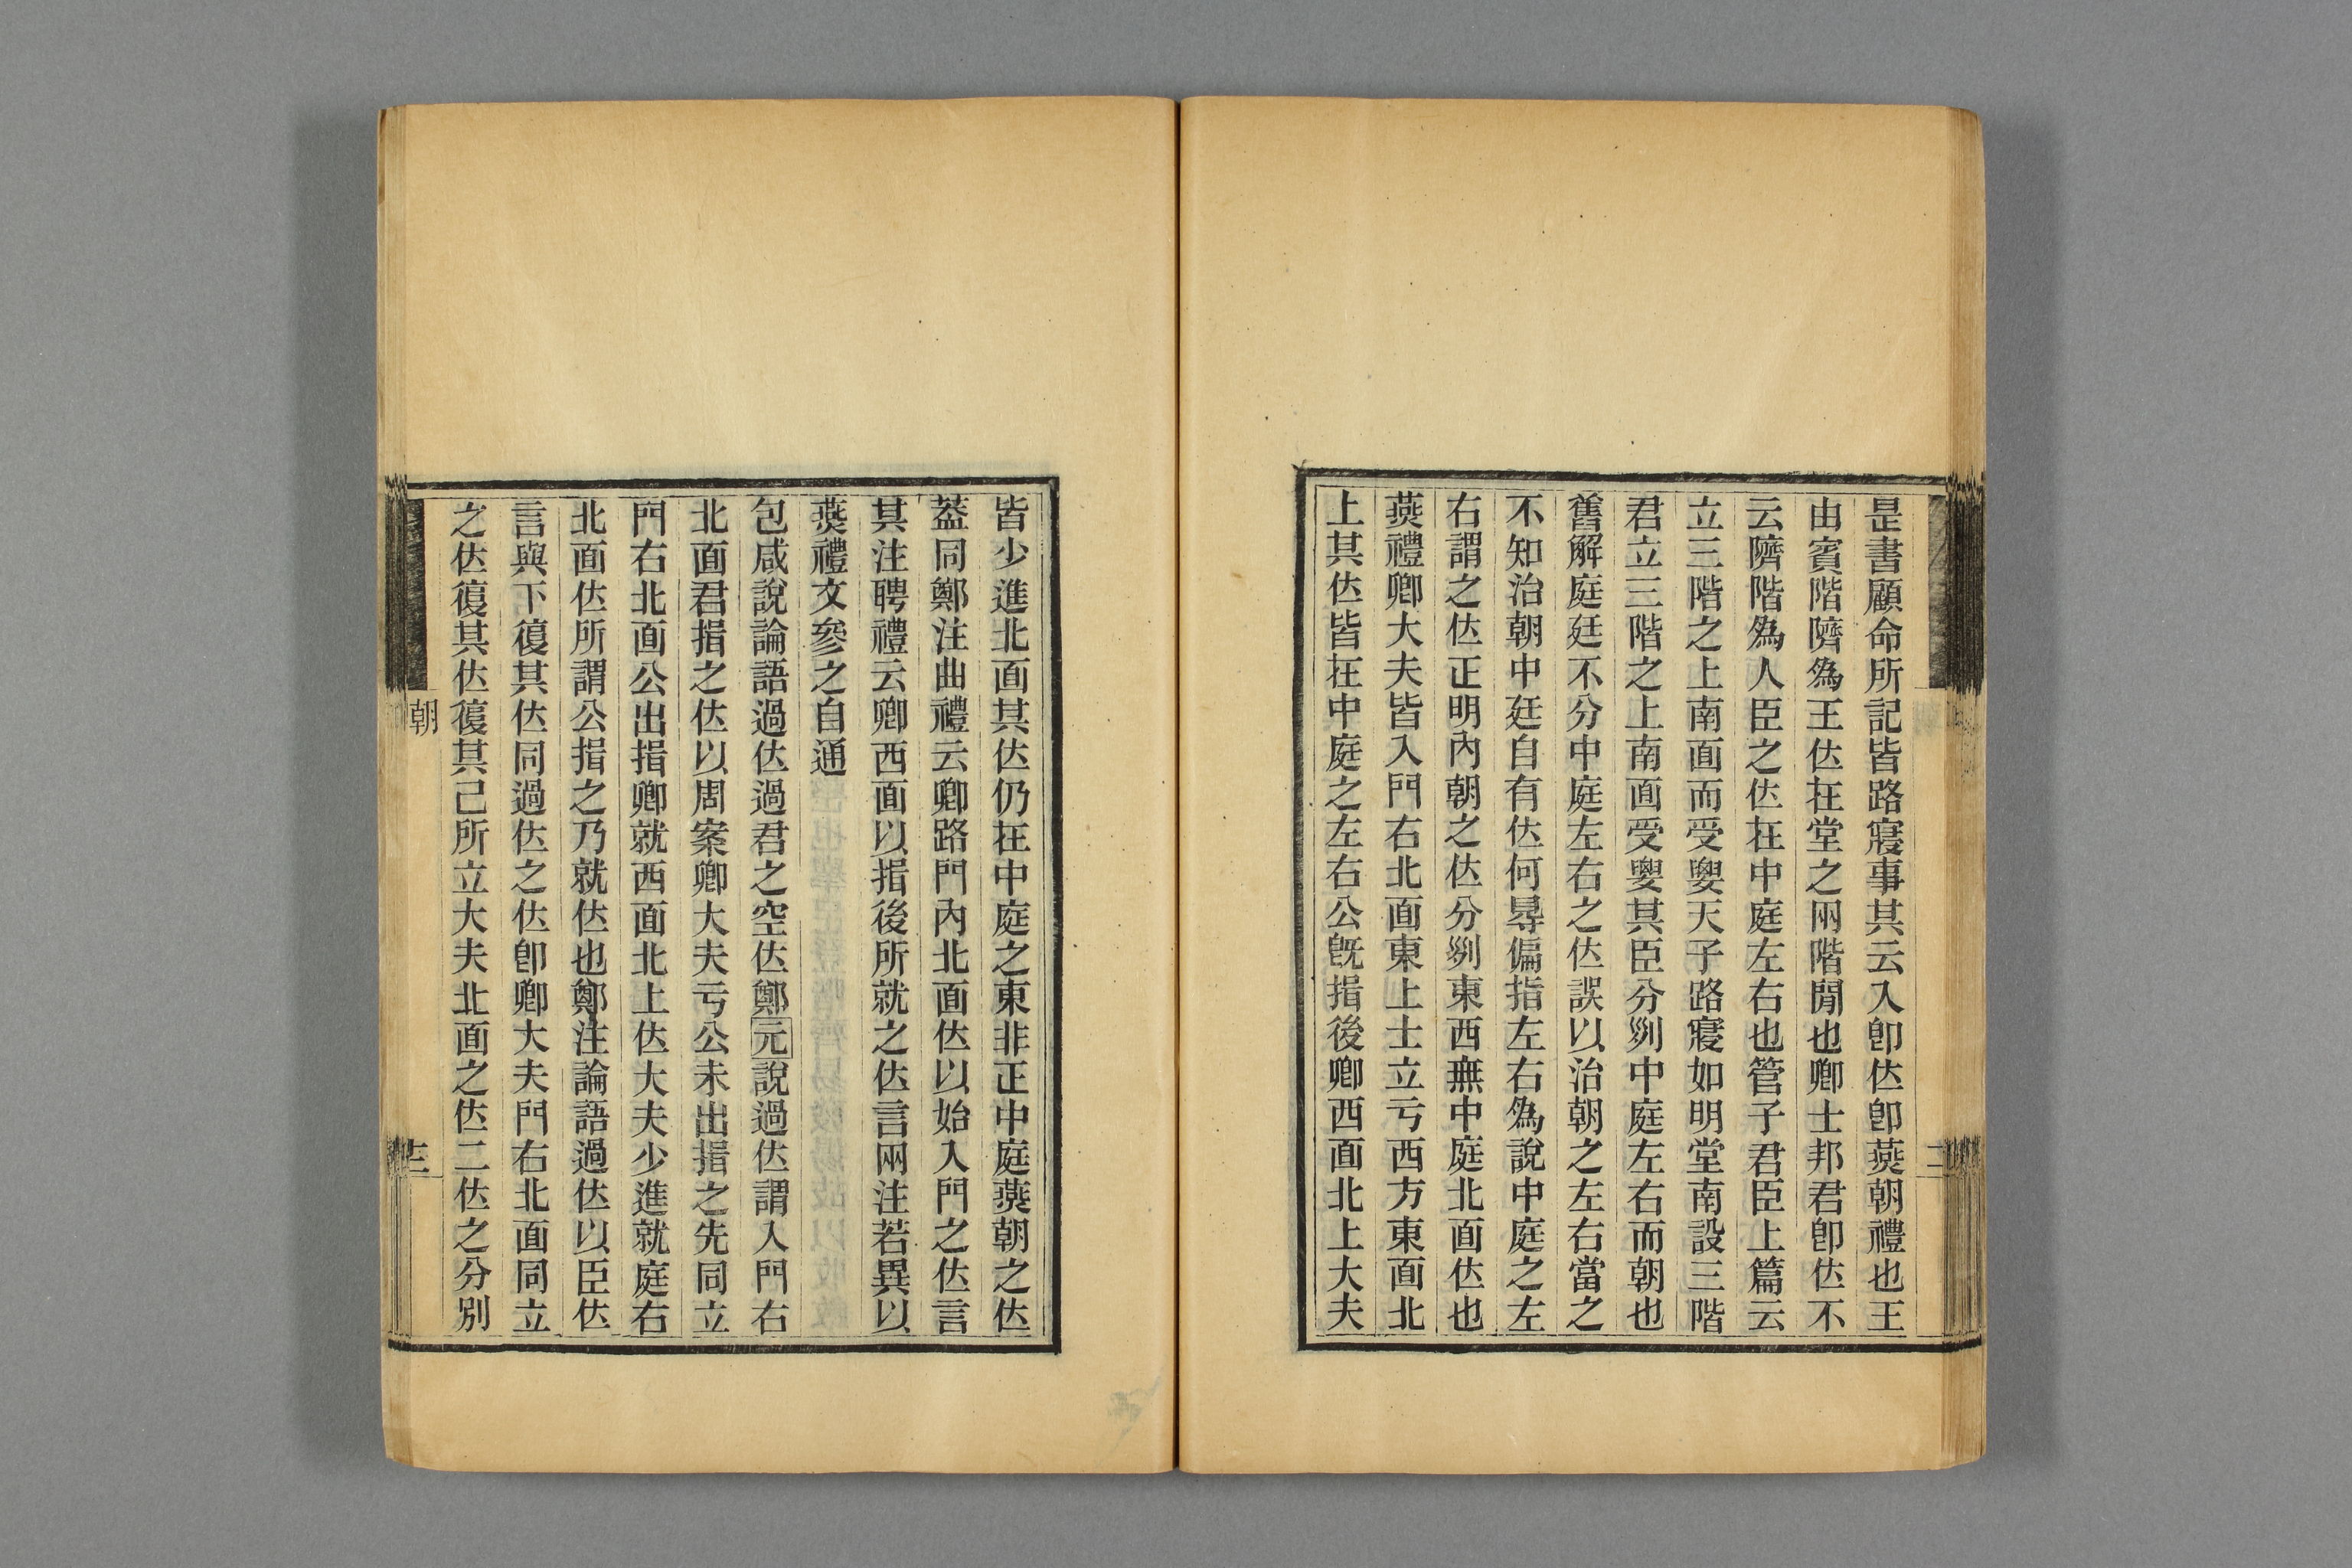 是書顧命所記皆路寢事其云入卽位卽燕朝禮也王
由賓階隮爲王位在堂之兩階閒也卿士邦君卽位不
云隮階爲人臣之位在中庭左右也管子君臣上篇云
立三階之上南面而受要天子路寢如明堂南設三階
君立三階之上南面受要其臣分別中庭左右而朝也
舊解庭廷不分中庭左右之位誤以治朝之左右當之
不知治朝中廷自有位何㝵偏指左右爲說中庭之左
右謂之位正明內朝之位分別東西無中庭北面位也
燕禮卿大夫皆入門右北面東上士立亏西方東面北
上其位皆在中庭之左右公旣揖後卿西面北上大夫
皆少進北面其位仍在中庭之東非正中庭燕朝之位
葢同鄭注曲禮云卿路門內北面位以始入門之位言
其注聘禮云卿西面以揖後所就之位言兩注若異以
燕禮文參之自通
包咸說論語過位過君之空位鄭元說過位謂入門右
北面君揖之位以周案卿大夫亏公未出揖之先同立
門右北面公出揖卿就西面北上位大夫少進就庭右
北面位所謂公揖之乃就位也鄭注論語過位以臣位
言與下復其位同過位之位卽卿大夫門右北面同立
之位復其位復其己所立大夫北面之位二位之分別
朝
三